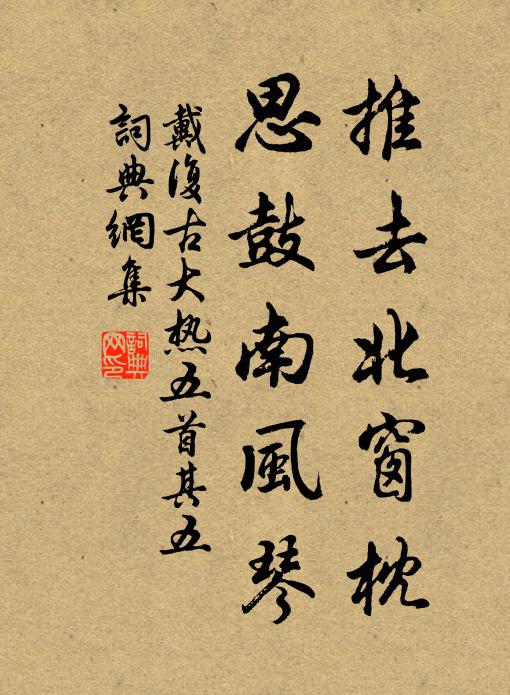 推去北窗枕
思鼓南風琴
戴復古大热五首其五
詞典網集
詞典网印